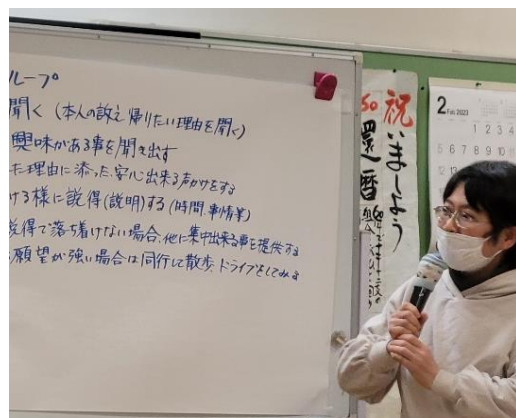 ループ
聞く (本人の訴え 帰りたい理由を聞く)
興味がある事を聞き出す
た理由に添った、安心出来る声かけをする
ける様に説得(説明)する (時間、事情等)
説得で落ち着けない場合、他に集中出来る事を提供する
願望が強い場合は同行して散歩、ドライブをしてみる
祝
いましょう
還暦
2 Feb 2023
1 2 3 4